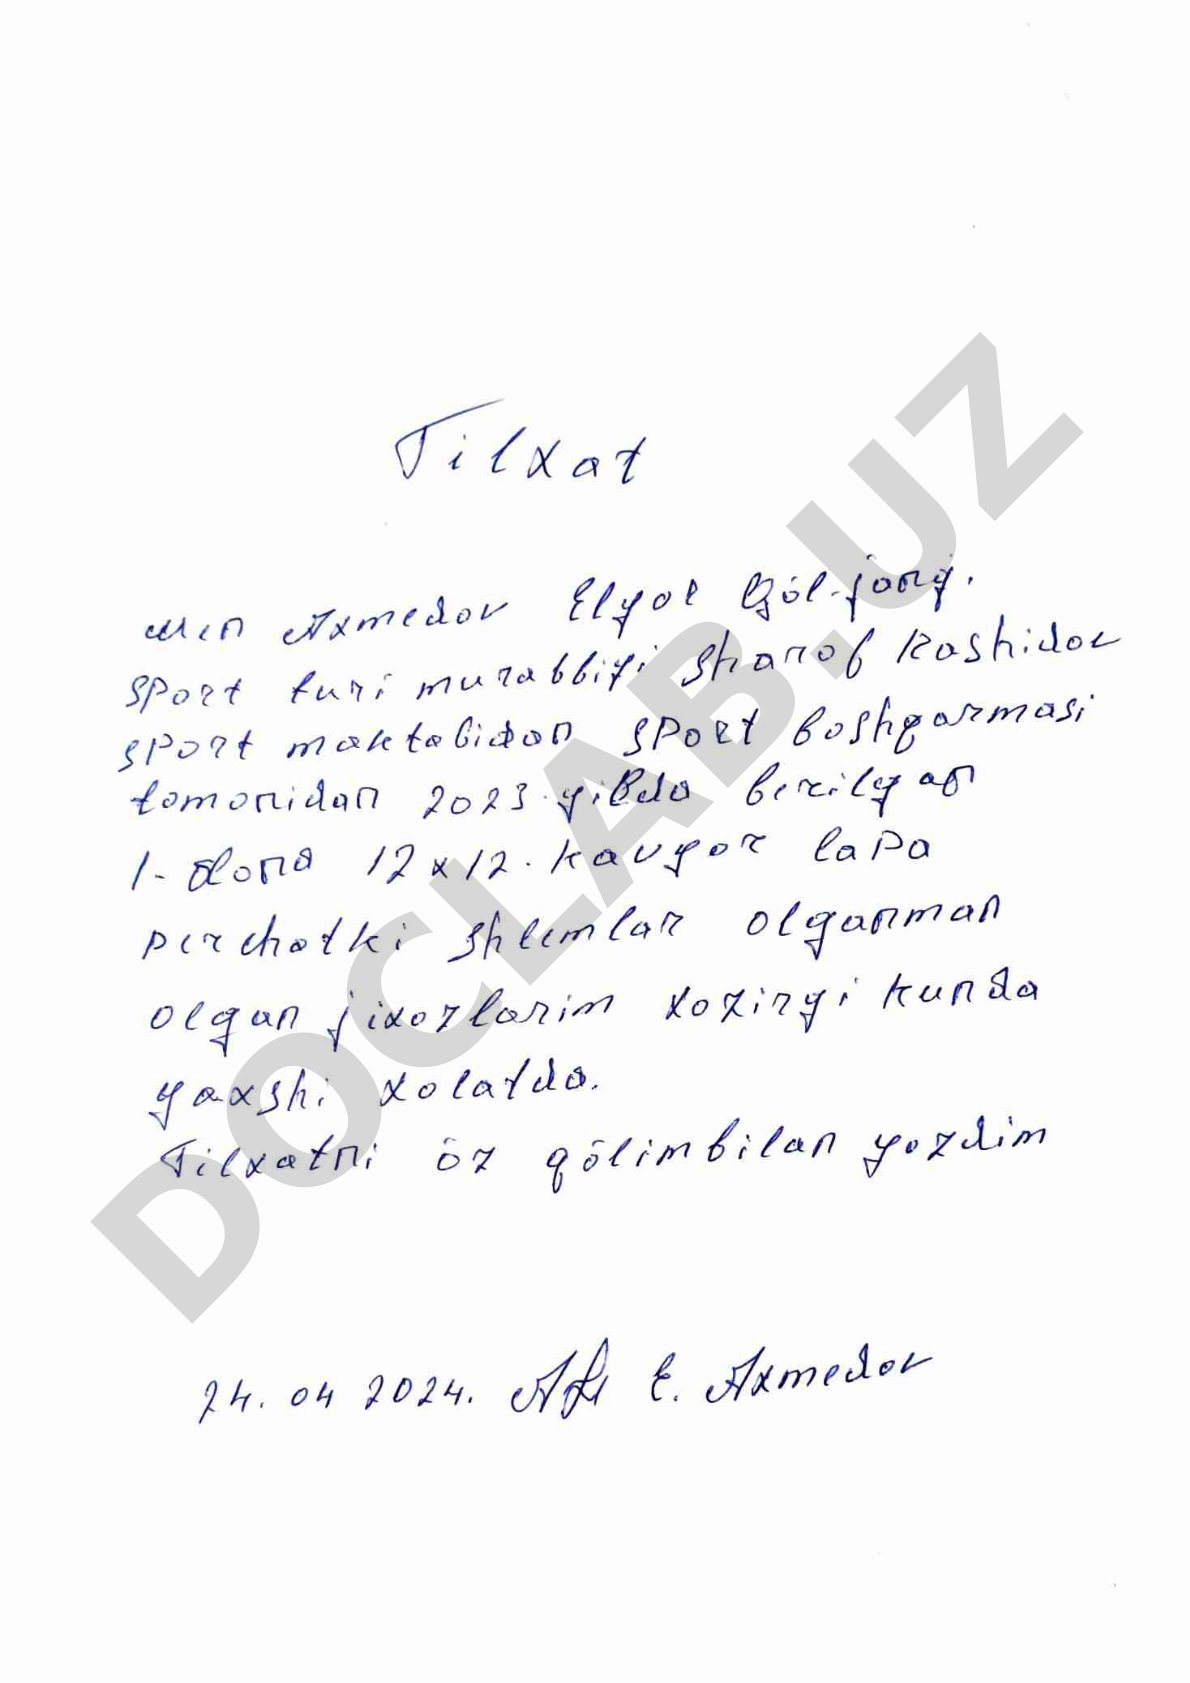 Tilxat
Men Axmedov Elyor
sport turi murabbiyi Sharof Rashidov
sport maktabidan sport boshqarmasi
tomonidan 2023.yilda berilgan
1-dona 12x12. kavyor lapa
perchatki shlemlar olganman
olgan jixozlarim xozirgi kunda
yaxshi xolatda.
Tilxatni öz qölim bilan yozdim
24. 04 2024. E. Axmedov
DOCLAB.UZ